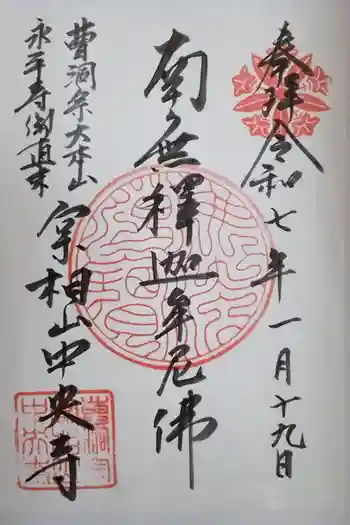 奉拝 令和七年一月十九日
南無釋迦牟尼佛
曹洞宗大本山
永平寺御直末
宗相山中央寺